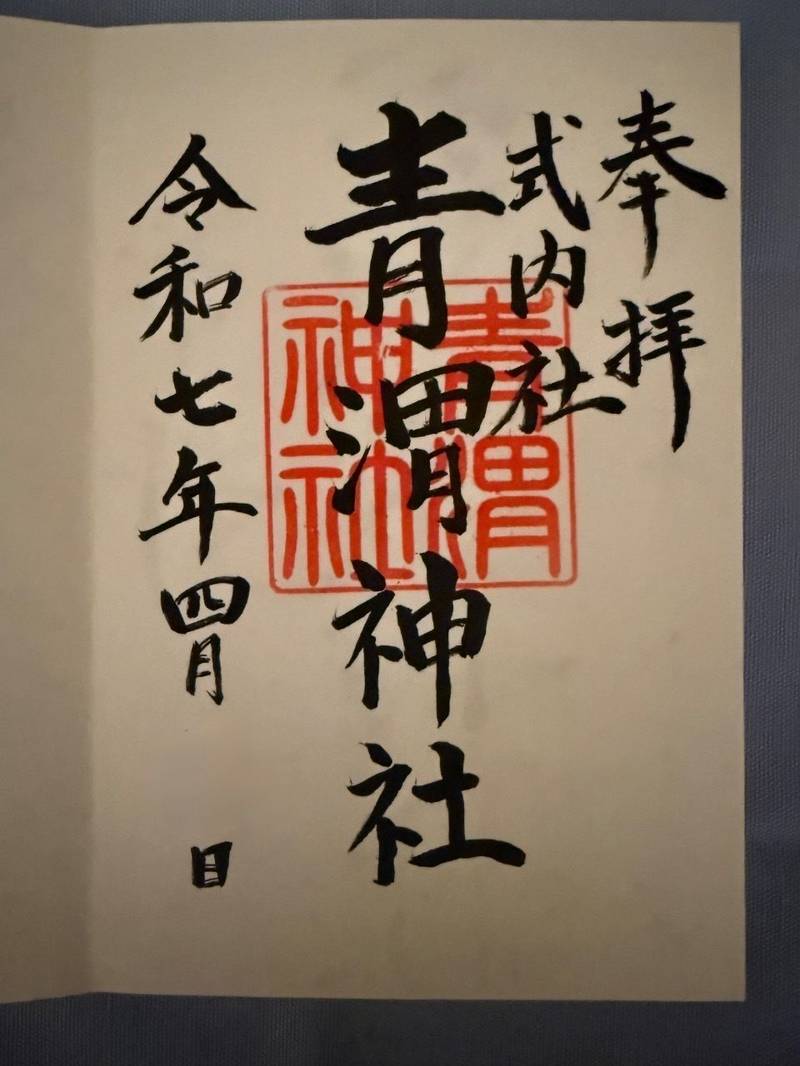 奉拝
式内社
青渭神社
青渭神社
令和七年四月 日